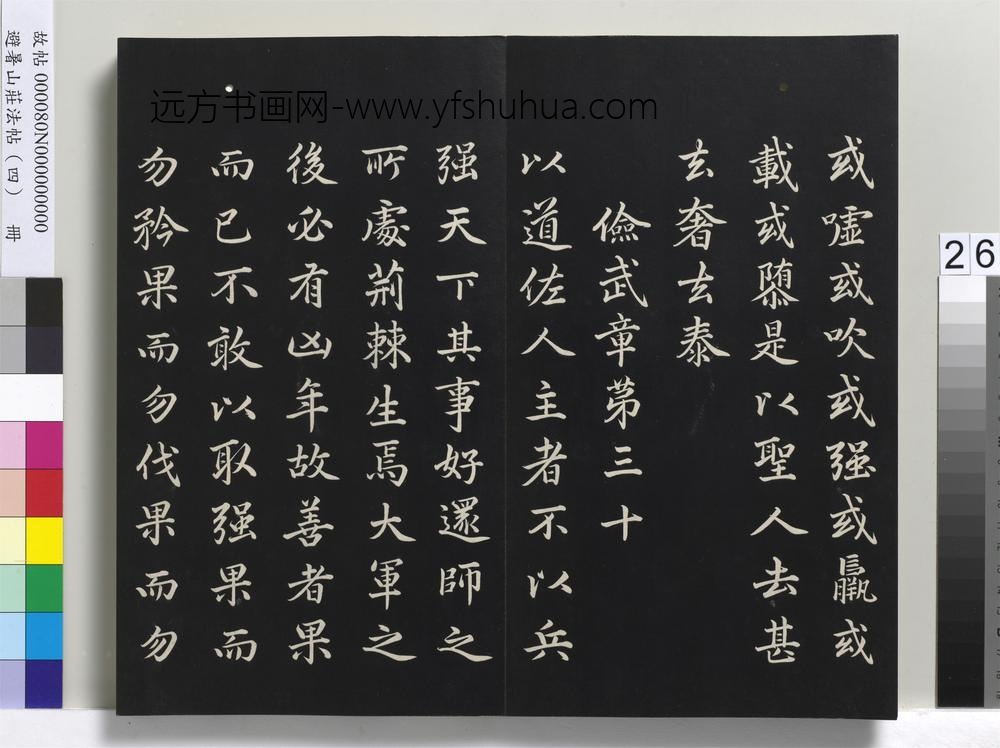 或噓或吹或强或羸或
載或隳是以聖人去甚
去奢去泰
儉武章第三十
以道佐人主者不以兵
强天下其事好還師之
所處荊棘生焉大軍之
後必有凶年故善者果
而已不敢以取强果而
勿矜果而勿伐果而勿
远方书画网-www.yfshuhua.com
故帖 000080N000000000
避暑山莊法帖（四） 冊
26